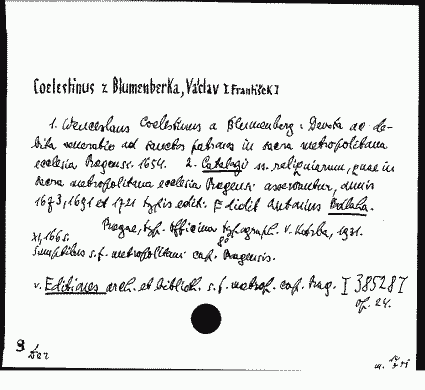 Coelestinus z Blumenberka, Václav [František]
1. Wenceslaus Coelestinus a Blumenberg: Devota ac de-
bita veneratio ad sanctos patronos in sacra metropolitana
ecclesia Pragensi. 1654. 2. Catalogi ss. reliquiarum, quae in
sacra metropolitana ecclesia Pragensi asservantur, annis
1673, 1691 et 1721 typis editi. Edidit Antonius Podlaha.
Pragae, typ. officina typograph. V. Kotrba, 1931.
XI, 166 s. 8°
Sumptibus s. f. metropolitani cap. Pragensis.
v. Editiones arch. et biblioth. s. f. metrop. cap. Prag. I 385287
op. 24.